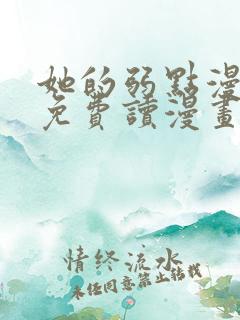 她的弱點漫
免費讀漫畫
情終流水
未任同意禁止转载